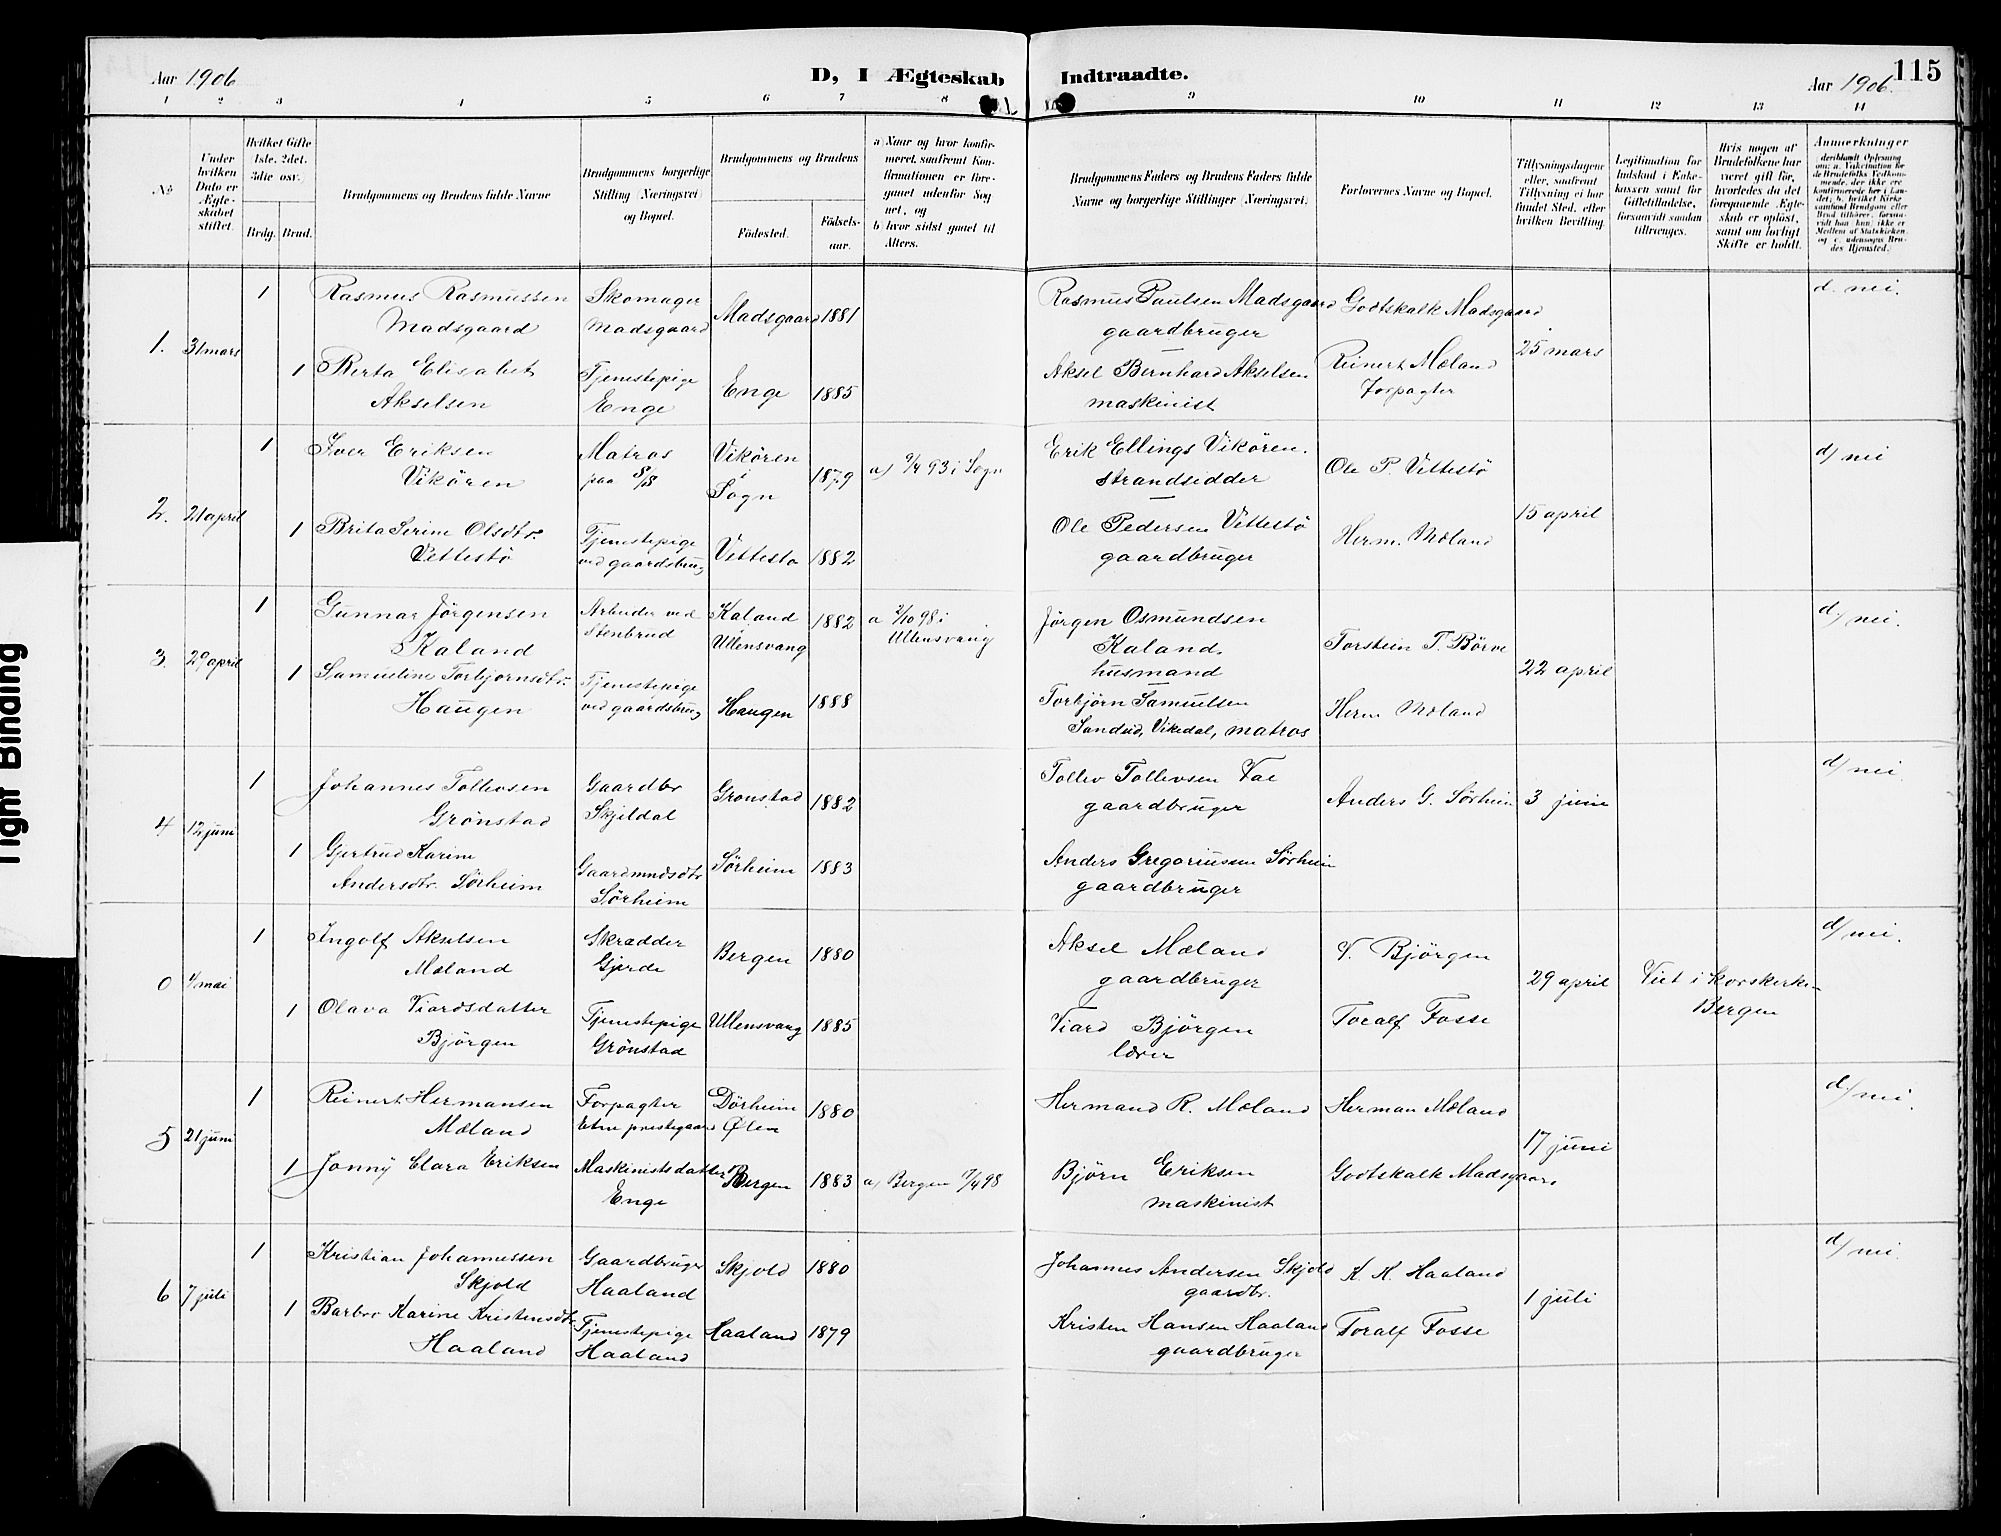 115
Aar 1906
D, I Ægteskab Indtraadte.
Aar 1906.
1 2 3 4 5 6 7 8 9 10 11 12 13 14
No
Under hvilken Dato er Ægteskabet stiftet.
Hvilket Gifte 1ste, 2det, 3die osv.)
Brdg. Brud.
Brudgommens og Brudens fulde Navne
Brudgommens borgerlige Stilling (Næringsvei) og Bopæl.
Brudgommens og Brudens
Födested.
Födsels-aar.
a) Naar og hvor konfirmeret, saafremt Konfirmationen er foregaaet udenfor Sognet, og
b) hvor sidst gaaet til Alters.
Brudgommens Faders og Brudens Faders fulde Navne og borgerlige Stillinger (Næringsvei)
Forlovernes Navne og Bopæl.
Tillysningsdagene eller, saafremt Tillysning ei har fundet Sted, efter hvilken Bevilling.
Legitimation for Indskud i Enkekassen samt for Giftetilladelse, forsaavidt saadan tiltrænges.
Hvis nogen af Brudefolkene har været gift för, hvorledes da det foregaaende Ægteskab er oplöst, samt om lovligt Skifte er holdt.
Anmerkninger
(deriblandt Oplysning om: a. Vakcination for de Brudefolks Vedkommende, der ikke ere konfirmerede her i Landet; b. hvilket Kirkesamfund Brudgom eller Brud tilhörer, forsaavidt han (hun) ikke er Medlem af Statskirken, og c. udensogns Brudes Hjemsted.)
1. 31 mars
1 Rasmus Rasmussen Madsgaard
Skomager Madsgaard
Madsgaard 1881
Rasmus Paulsen Madsgaard gaardbruger
Godtskalk Madsgaard
25 mars
d. nei.
1 Berta Elisabet Akselsen
Tjenestepige Enge
Enge 1885
Aksel Bernhard Akselsen maskinist
Reinert Mæland Forpagter
2. 21 april
1 Iver Eriksen Vikören
Matros paa S/S
Vikören i Sogn 1879
a) 9/4 93 i Sogn
Erik Ellings Vikören. strandsidder
Ole P. Vettestö
15 april
d/ nei
1 Brita Serine Olsdtr. Vettestö
Tjenestepige ved gaardsbrug
Vettestö 1882
Ole Pedersen Vettestö gaardbruger
Herm. Mæland
3. 29 april
1 Gunnar Jörgensen Kaland
Arbeider ved Stenbrud
Kaland Ullensvang 1882
a 2/10 98 i Ullensvang
Jörgen Osmundsen Kaland, husmand
Torstein T. Börve
22 april
d/ nei.
1 Samueline Torbjornsdtr. Haugen
Tjenestepige ved gaardsbrug
Haugen 1888
Torbjörn Samuelsen
Sandvid, Vikedal, matros
Herm Mæland
4 12 juni
1 Johannes Tollevsen Grönstad
Gaardbr Skjeldal
Gronstad 1882
Tollev Tollevsen Vae gaardbruger
Anders G. Sørheim
3 juni
d/ nei
1 Gjertrud Karine Andersdtr. Sörheim
Gaardmndsdtr Sörheim
Sørheim 1883
Anders Gregoriussen Sørheim gaardbruger
0 4/mai
1 Ingolf Akselsen Mæland
Skrædder Gjerde
Bergen 1880
Aksel Mæland gaardbruger
V. Björgen
29 april
Viet i Korskerke Bergen
d/ nei.
1 Olava Viardsdatter Björgen
Tjenestepige Grönstad
Ullensvang 1885
Viard Björgen lærer
Toralf Fosse
5 21 juni
1 Reinert Hermansen Mæland
Forpagter Etne prestegaard
Dörheim Ølen 1880
Hermand R. Mæland
Herman Mæland
17 juni
d/ nei.
1 Jonny Clara Eriksen
Maskinistsdatter Enge
Bergen 1883
a) Bergen 7/4 98
Björn Eriksen maskinist
Godtskalk Madsgaard
6 7 juli
1 Kristian Johannessen Skjold
Gaardbruger Haaland
Skjold 1880
Johannes Andersen Skjold gaardbr.
K. K. Haaland
1 juli
d/ nei
1 Barbro Karine Kristensdtr. Haaland
Tjenestepige Haaland
Haaland 1879
Kristen Hansen Haaland gaardbruger
Toralf Fosse
Tight Binding